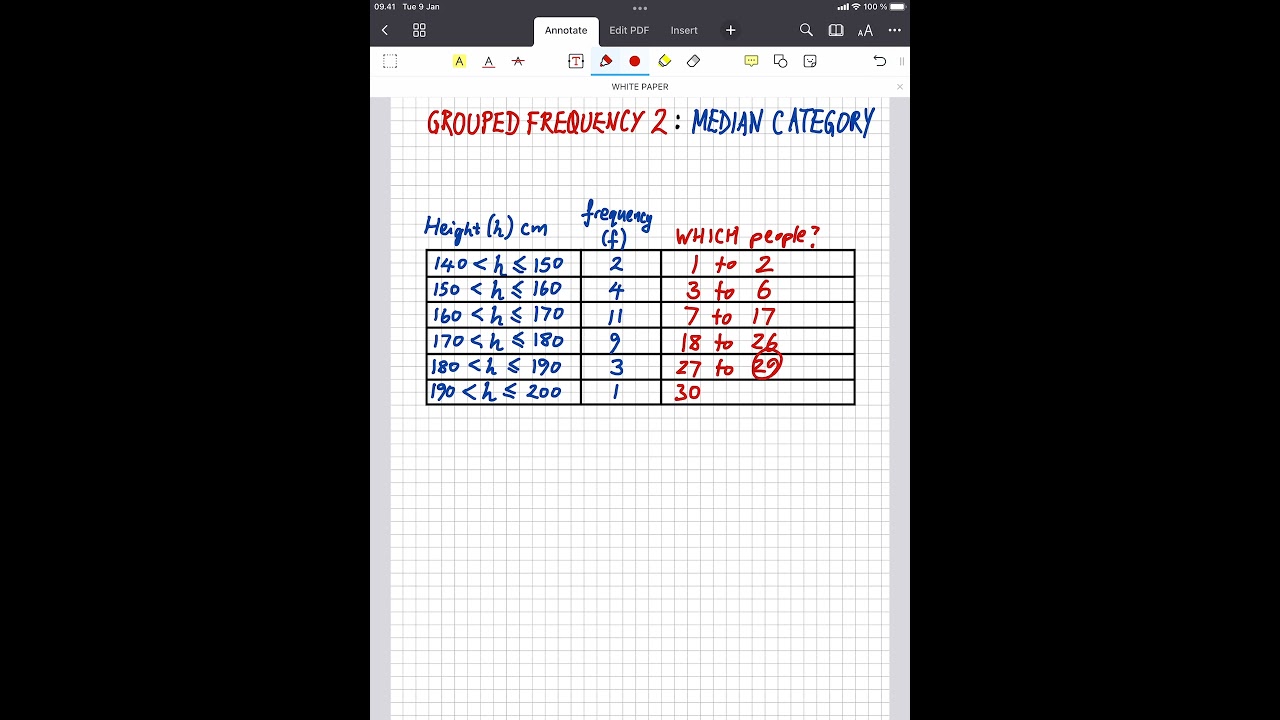 09.41 Tue 9 Jan 100 %
Annotate Edit PDF Insert
A A A T AA
WHITE PAPER
GROUPED FREQUENCY 2 : MEDIAN CATEGORY
Height (h) cm frequency (f) WHICH people?
140 < h ⩽ 150 2 1 to 2
150 < h ⩽ 160 4 3 to 6
160 < h ⩽ 170 11 7 to 17
170 < h ⩽ 180 9 18 to 26
180 < h ⩽ 190 3 27 to 29
190 < h ⩽ 200 1 30